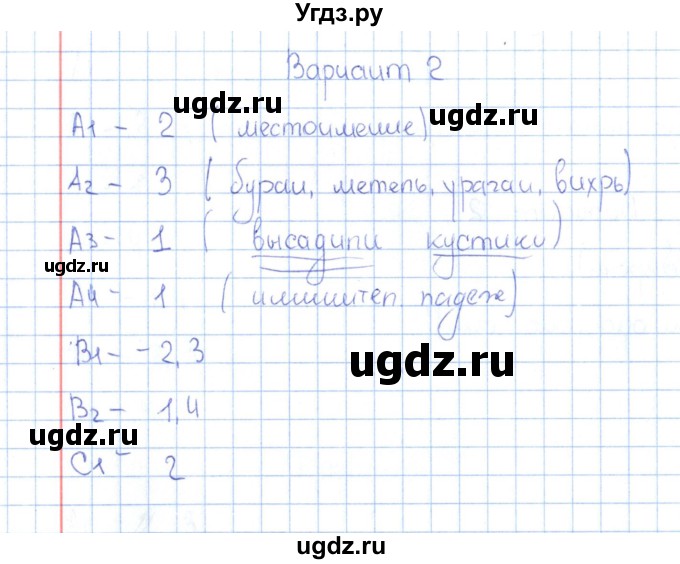 Угдз.ру
Вариант 2
ugdz.ru
ugdz.ru
А1 - 2 (местоимение)
А2 - 3 (буран, метель, ураган, вихрь)
ugdz.ru
А3 - 1 (высадили кустики)
ugdz.ru
А4 - 1 (именител. падеж)
В1 - - 2,3
ugdz.ru
В2 - 1,4
ugdz.ru
С1 - 2
ugdz.ru